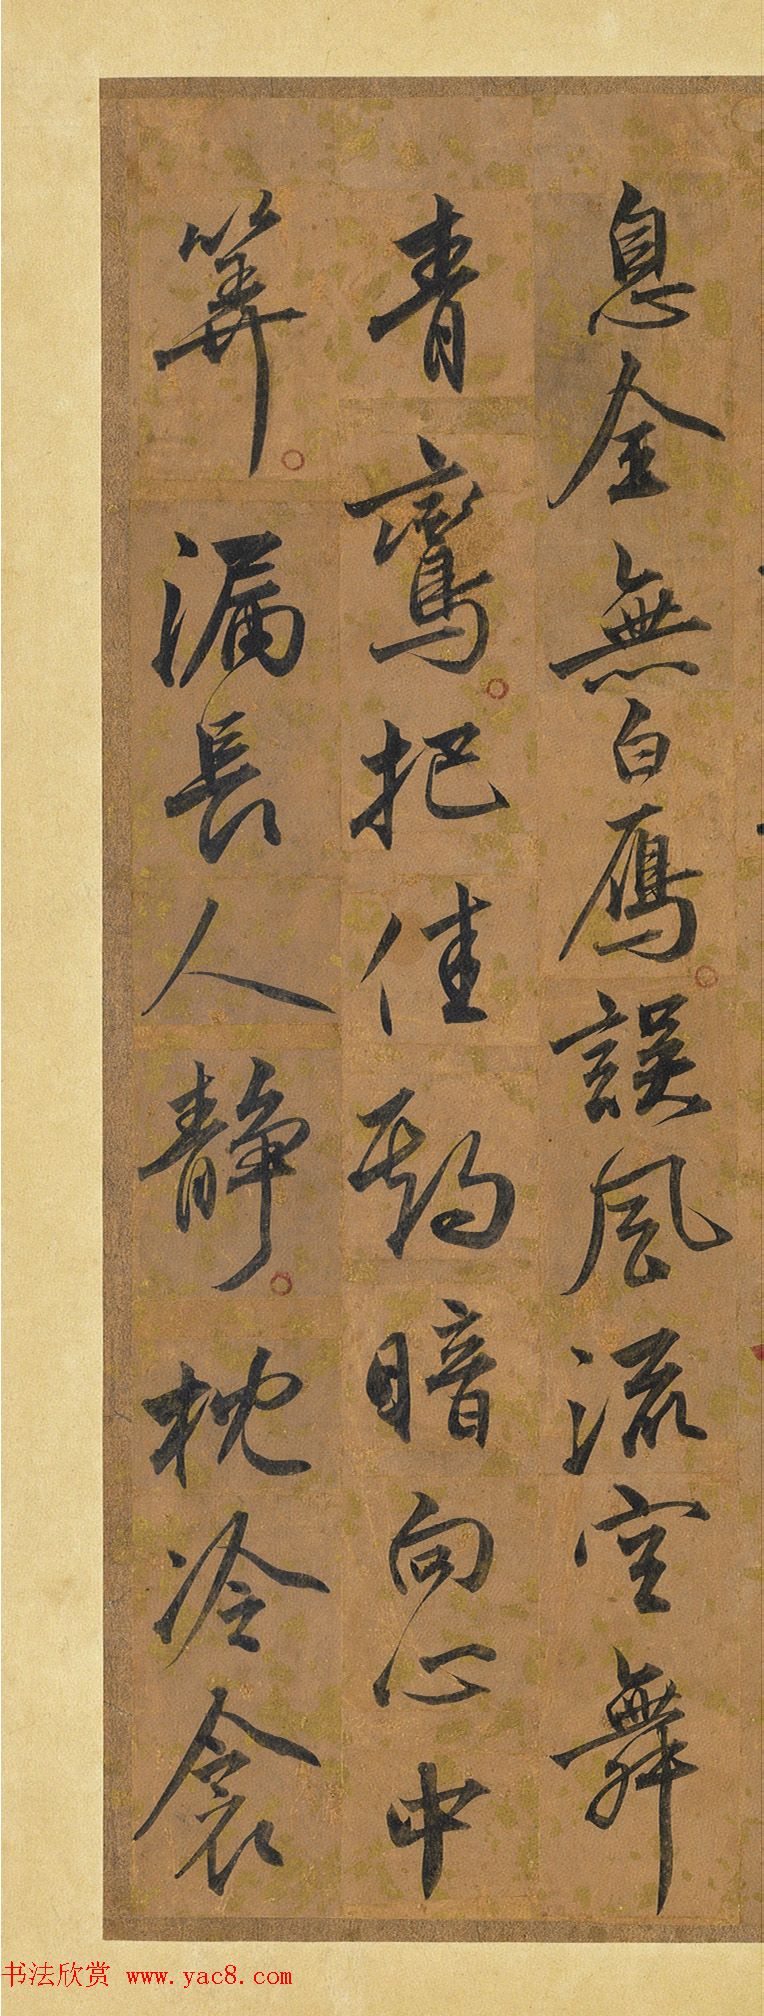 息全無白鴈誤風流空舞
青鸞把佳期暗向心中
筭漏長人靜枕冷衾
书法欣赏 www.yac8.com